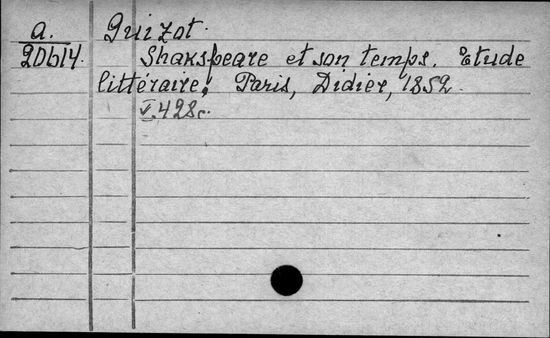 a. Guizot.
20614. Shakspeare et son temps. Etude
littéraire. Paris, Didier, 1852.
V.428c.